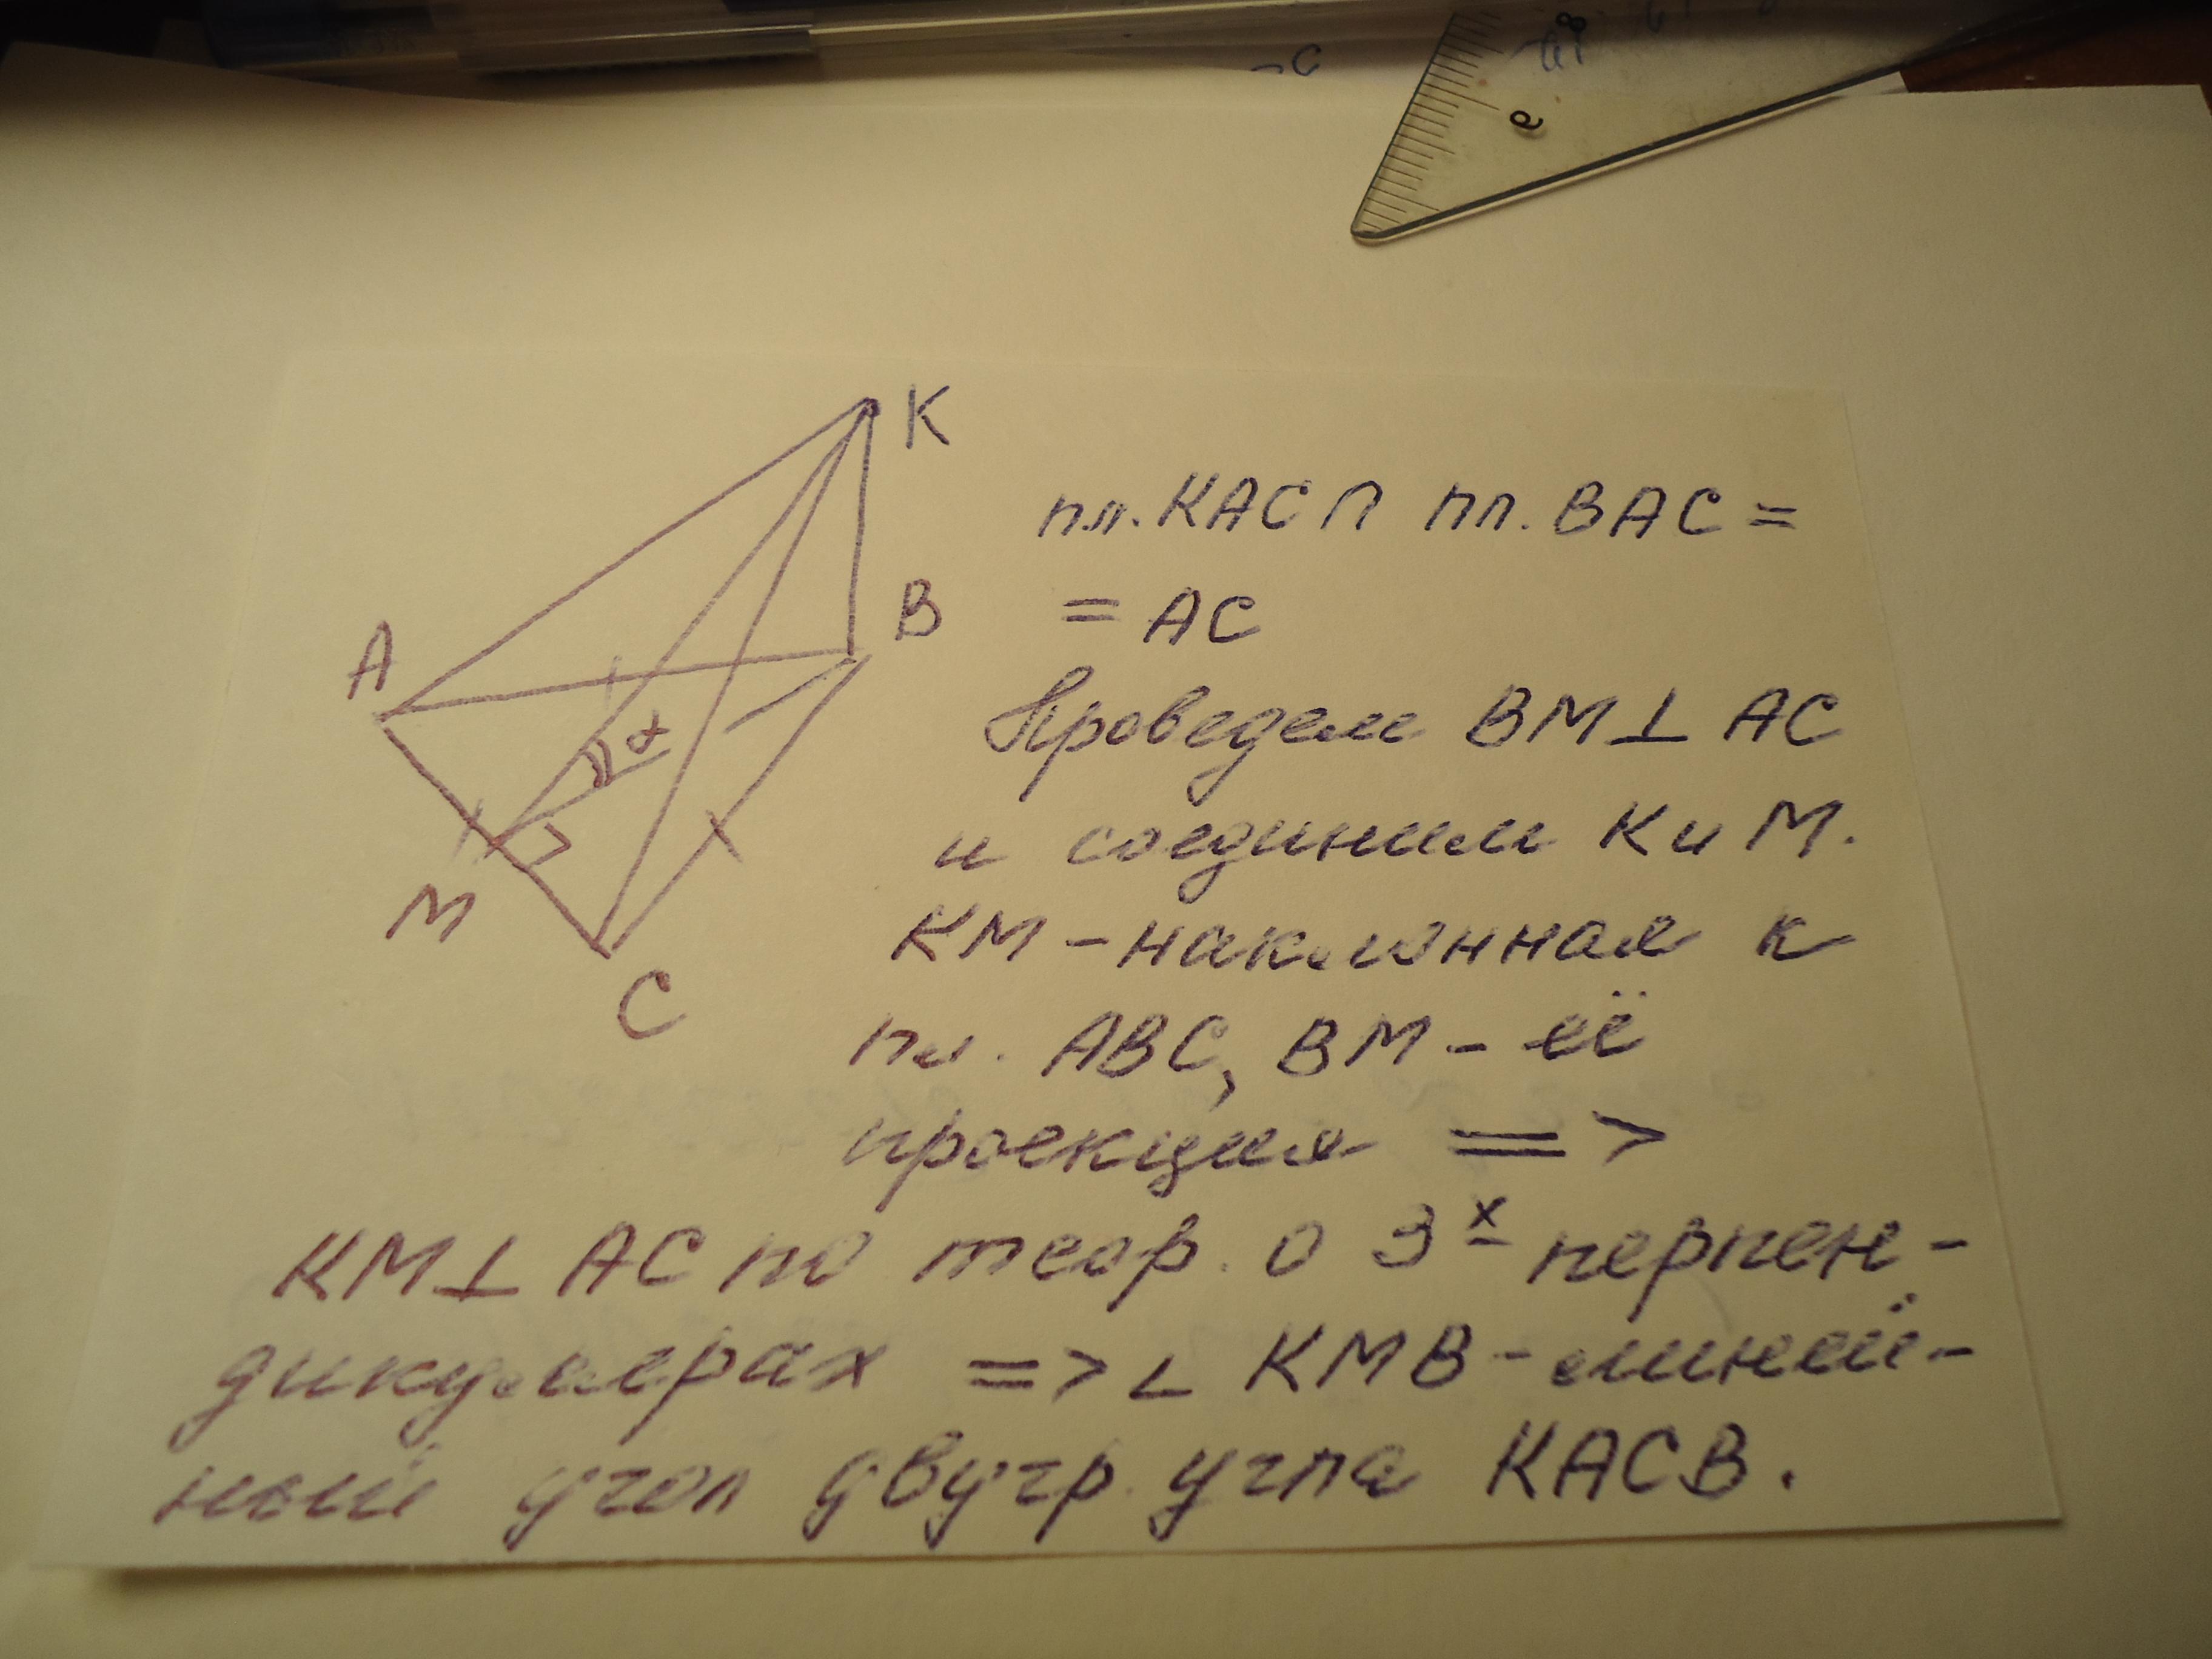 -C
8
9
K
пл. KAC ∩ пл. BAC =
B
= AC
A
Проведем BM⊥ AC
α
и соединим K и M.
M
KM - наклонная к
C
пл. ABC, BM - её
проекция =>
KM⊥ AC по теор. о 3х перпен-
дикулярах => ∠ KMB - линей-
ный угол двугр. угла KACB.